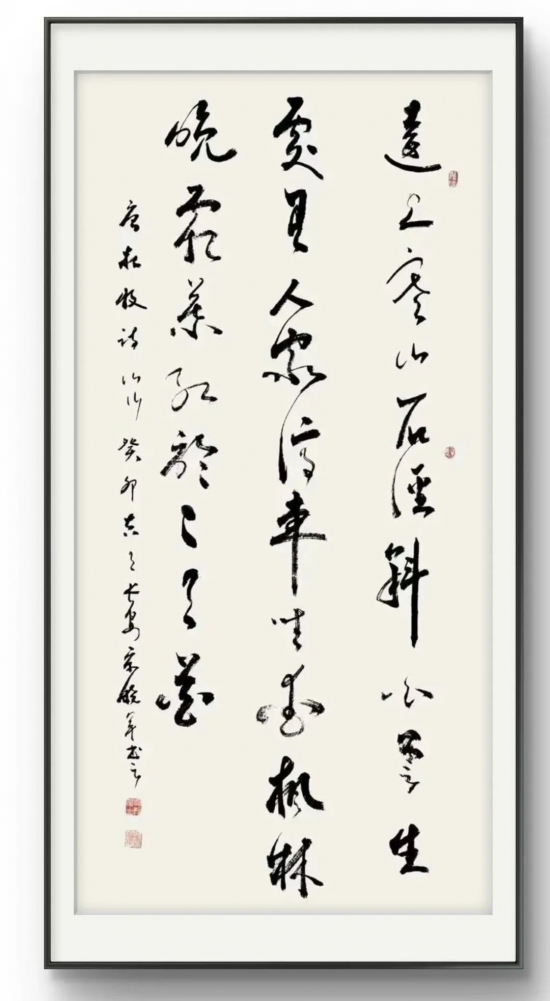 遠上寒山石徑斜白雲生
處有人家停車坐愛楓林
晚霜葉紅於二月花
唐杜牧詩山行癸卯長安曉軍書